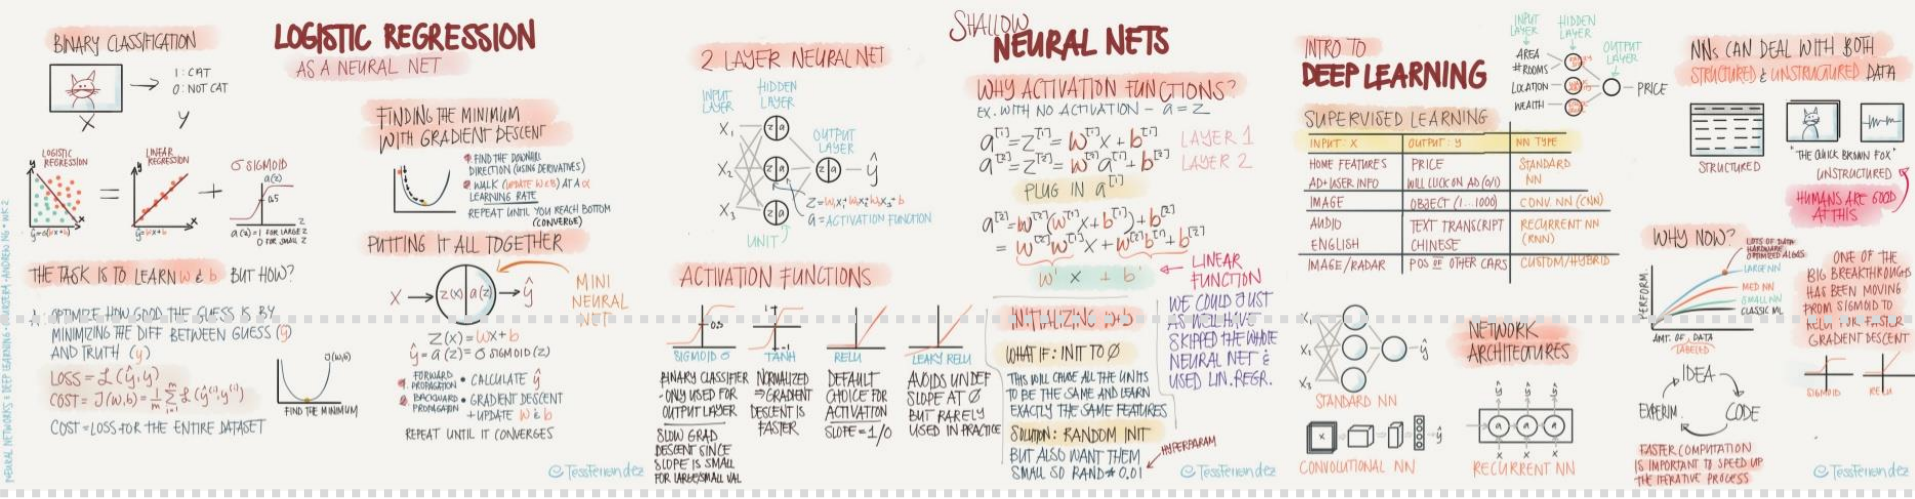 BINARY CLASSIFICATION
1: CAT
0: NOT CAT
X
y
LOGISTIC REGRESSION
AS A NEURAL NET
LOGISTIC
REGRESSION
=
LINEAR
REGRESSION
+
σ SIGMOID
a(z)
0.5
z
a(z)=1 FOR LARGE z
0 FOR SMALL z
THE TASK IS TO LEARN w & b BUT HOW?
A: OPTIMIZE HOW GOOD THE GUESS IS BY
MINIMIZING THE DIFF BETWEEN GUESS (ŷ)
AND TRUTH (y)
LOSS = L(ŷ, y)
COST = J(w,b) = 1/m Σ L(ŷ⁽ⁱ⁾, y⁽ⁱ⁾)
COST = LOSS FOR THE ENTIRE DATASET
J(w,b)
FIND THE MINIMUM
FINDING THE MINIMUM
WITH GRADIENT DESCENT
FIND THE DOWNHILL
DIRECTION (USING DERIVATIVES)
WALK (UPDATE w & b) AT A α
LEARNING RATE
REPEAT UNTIL YOU REACH BOTTOM
(CONVERGE)
PUTTING IT ALL TOGETHER
X → z(x) a(z) → ŷ
MINI
NEURAL
NET
z(x) = wx + b
ŷ = a(z) = σ SIGMOID(z)
FORWARD
PROPAGATION • CALCULATE ŷ
BACKWARD
PROPAGATION • GRADIENT DESCENT
+ UPDATE w & b
REPEAT UNTIL IT CONVERGES
NEURAL NETWORKS & DEEP LEARNING • COURSERA • ANDREW NG • WK 2
© TessFerrandez
SHALLOW
NEURAL NETS
2 LAYER NEURAL NET
INPUT
LAYER
HIDDEN
LAYER
OUTPUT
LAYER
X₁
X₂
X₃
z a
ŷ
z = w₁x₁ + w₂x₂ + w₃x₃ + b
a = ACTIVATION FUNCTION
UNIT
ACTIVATION FUNCTIONS
0.5
SIGMOID σ
1
-1
TANH
RELU
LEAKY RELU
BINARY CLASSIFIER
- ONLY USED FOR
OUTPUT LAYER
SLOW GRAD
DESCENT SINCE
SLOPE IS SMALL
FOR LARGE/SMALL VAL
NORMALIZED
⇒ GRADIENT
DESCENT IS
FASTER
DEFAULT
CHOICE FOR
ACTIVATION
SLOPE = 1/0
AVOIDS UNDEF
SLOPE AT 0
BUT RARELY
USED IN PRACTICE
WHY ACTIVATION FUNCTIONS?
EX. WITH NO ACTIVATION - a = z
a[1] = z[1] = w[1]x + b[1] LAYER 1
a[2] = z[2] = w[2]a[1] + b[2] LAYER 2
PLUG IN a[1]
a[2] = w[2](w[1]x + b[1]) + b[2]
= w[2]w[1]x + w[2]b[1] + b[2]
w' x + b'
LINEAR
FUNCTION
WE COULD JUST
AS WELL HAVE
SKIPPED THE WHOLE
NEURAL NET &
USED LIN. REGR.
INITIALIZING w + b
WHAT IF: INIT TO 0
THIS WILL CAUSE ALL THE UNITS
TO BE THE SAME AND LEARN
EXACTLY THE SAME FEATURES
SOLUTION: RANDOM INIT
BUT ALSO WANT THEM
SMALL SO RAND * 0.01
HYPERPARAM
© TessFerrandez
INTRO TO
DEEP LEARNING
INPUT
LAYER
HIDDEN
LAYER
OUTPUT
LAYER
AREA
# ROOMS
LOCATION
WEALTH
PRICE
SUPERVISED LEARNING
INPUT: X OUTPUT: y NN TYPE
HOME FEATURES PRICE STANDARD
AD+USER INFO WILL CLICK ON AD (0/1) NN
IMAGE OBJECT (1...1000) CONV. NN (CNN)
AUDIO TEXT TRANSCRIPT RECURRENT NN
ENGLISH CHINESE (RNN)
IMAGE/RADAR POS OF OTHER CARS CUSTOM/HYBRID
X₁
X₂
X₃
ŷ
STANDARD NN
X
ŷ
CONVOLUTIONAL NN
NETWORK
ARCHITECTURES
ŷ ŷ ŷ
a a a
x x x
RECURRENT NN
NNs CAN DEAL WITH BOTH
STRUCTURED & UNSTRUCTURED DATA
STRUCTURED
"THE QUICK BROWN FOX"
UNSTRUCTURED
HUMANS ARE GOOD
AT THIS
WHY NOW?
LOTS OF DATA
HARDWARE
OPTIMIZED ALGOS
PERFORM.
LARGE NN
MED NN
SMALL NN
CLASSIC ML
AMT. OF DATA
LABELED
ONE OF THE
BIG BREAKTHROUGHS
HAS BEEN MOVING
FROM SIGMOID TO
RELU FOR FASTER
GRADIENT DESCENT
SIGMOID
RELU
IDEA
CODE
EXPERIM.
FASTER COMPUTATION
IS IMPORTANT TO SPEED UP
THE ITERATIVE PROCESS
© TessFerrandez